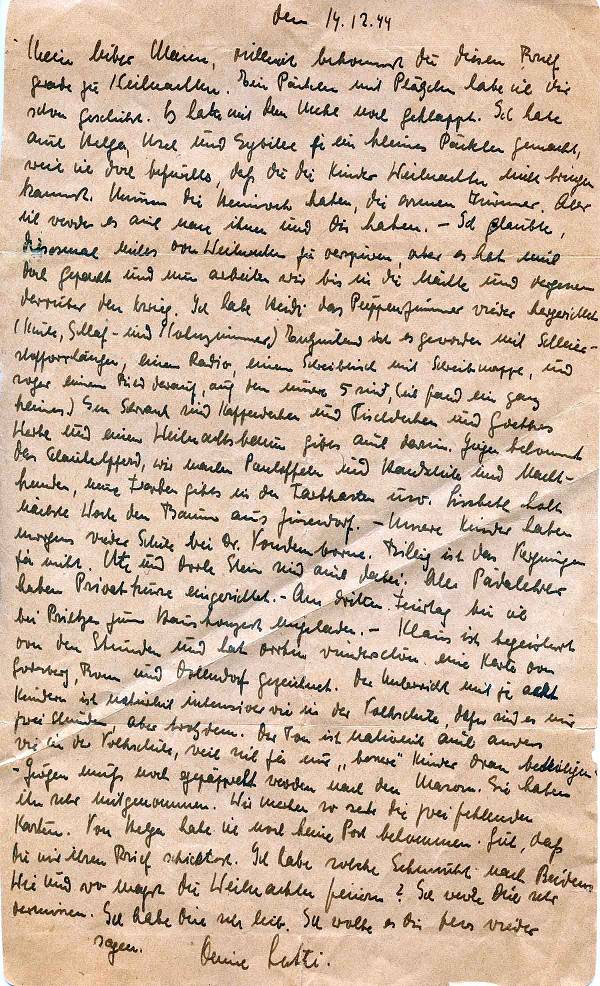 den 14.12.44
Mein lieber Mann, vielleicht bekommst du diesen Brief
gerade zu Weihnachten. Ein Päckchen mit Plätzchen habe ich dir
schon geschickt. Es hat mit dem noch geklappt. Ich habe
auch Helga, Usel und Sybille je ein kleines Päckchen gemacht,
weil ich doch befürchte, daß du die Kinder Weihnachten nicht bringen
kannst. Nun die Heimweh haben, die armen Würmer. Aber
ich werde es auch nach ihnen und dir haben. - Ich glaubte,
diesesmal nichts von Weihnachten zu verspüren, aber es hat mich
doch gepackt und nun arbeiten wir bis in die Nächte und vergessen
darüber den Krieg. Ich habe Heidi das Puppenzimmer wieder hergerichtet
(Küche, Schlaf- und Wohnzimmer) ist es geworden mit Schleier-
stoffvorhängen, einem Radio, einem Schreibtisch mit Schreibmappe, und
sogar einem Bild darauf, auf dem unsere 5 sind, (ich fand ein ganz
kleines.) Im Schrank sind Kaffeedecken und Tischdecken und Goethes
Werke und einen Weihnachtsbaum gibts auch darin. Jürgen bekommt
das Schaukelpferd, wir machen Pantoffeln und Handschuhe und Nacht-
hemden, neue Farben gibts in den Farbkasten usw. Lisbeth holt
nächste Woche den Baum aus . - Unsere Kinder haben
morgens wieder Schule bei Dr. Vondenborne. Billig ist das Vergnügen
ja nicht. Ute und Dorle Stein sind auch dabei. Alle Pädalehrer
haben Privatkurse eingerichtet. - Am dritten Feiertag bin ich
bei zum Hauskonzert eingeladen. - Klaus ist begeistert
von den Stunden und hat vorhin wunderschön eine Karte von
Godesberg, Bonn und Dollendorf gezeichnet. Der Unterricht mit je acht
Kindern ist natürlich intensiver wie in der Volkschule, dafür sind es nur
zwei Stunden, aber trotzdem. Der Ton ist natürlich auch anders
wie in der Volkschule, weil sich ja nur „bessere" Kinder dran beteiligen.
- Jürgen muß noch gepäppelt werden nach den Masern. Sie haben
ihn sehr mitgenommen. Wir suchen so sehr die zwei fehlenden
Karten. Von Helga habe ich noch keine Post bekommen. Gut, daß
du mir ihren Brief schicktest. Ich habe solche Sehnsucht nach Beiden.
Wie und wo magst du Weihnachten feiern? Ich werde Dich sehr
vermissen. Ich habe Dich sehr lieb. Ich wollte es dir bloß wieder
sagen. Deine